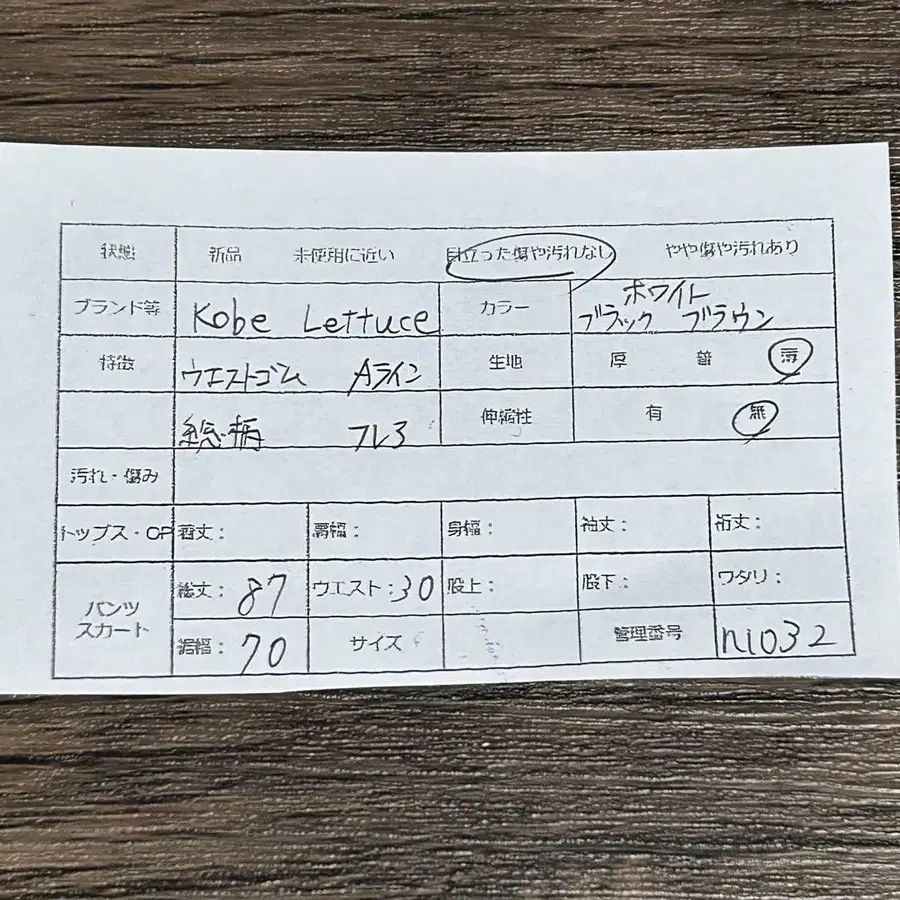 状態 新品 未使用に近い 目立った傷や汚れなし やや傷や汚れあり
ブランド等 Kobe Lettuce カラー ホワイト
ブラック ブラウン
特徴 ウエストゴム Aライン 生地 厚 普 薄
総柄 フレア 伸縮性 有 無
汚れ・傷み
トップス・OP 着丈: 肩幅: 身幅: 袖丈: 裄丈:
パンツ
スカート
総丈: 87 ウエスト: 30 股上: 股下: ワタリ:
裾幅: 70 サイズ 管理番号 n1032